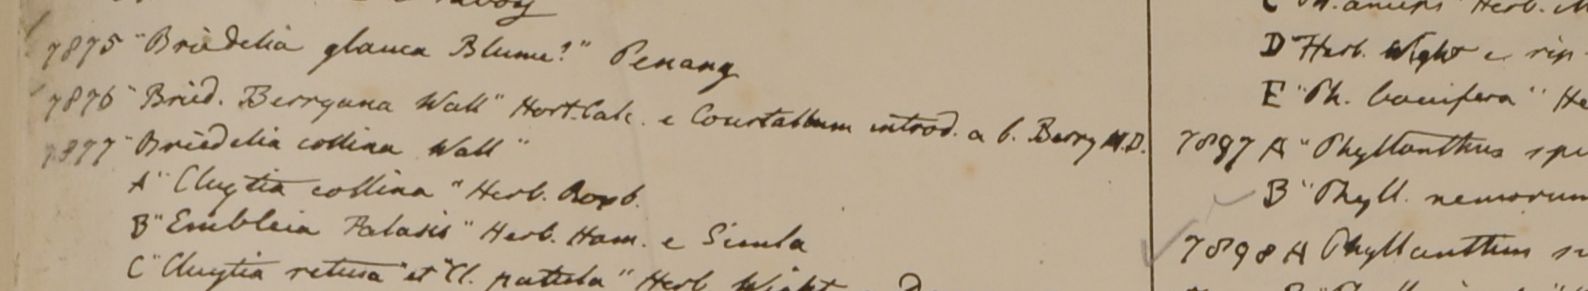 7875 "Briedelia glauca Blume?" Penang
7876 "Bried. Berryana Wall" Hort. Calc. e Courtallum introd. a b. Berry M.D.
7877 "Briedelia collina Wall"
A "Cluytia collina" Herb. Roxb.
B "Emblica Palasis" Herb. Ham. e Simla
C "Cluytia retusa" et "Cl. patula" Herb. Wight
D "Herb. Wight e
E "Ph. baccifera" He
7897 A "Phyllanthus spe
B "Phyll. nemorum
7898 A Phyllanthus